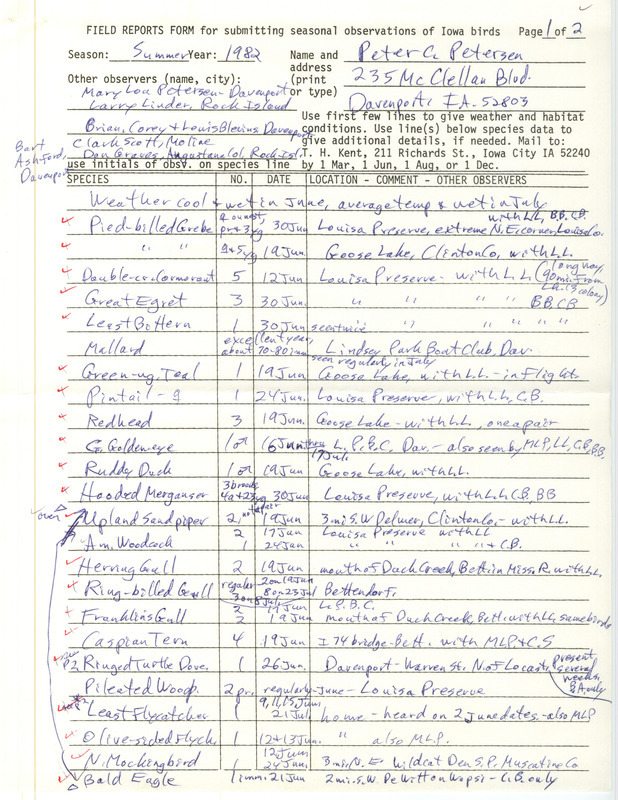 FIELD REPORTS FORM for submitting seasonal observations of Iowa birds Page 1 of 2
Season: Summer Year: 1982 Name and address (print or type) Peter C. Petersen
235 McClellan Blvd.
Davenport, IA. 52803
Other observers (name, city):
Mary Lou Petersen - Davenport
Larry Linder, Rock Island
Brian, Corey & Louis Blevins Davenport
Clark Scott, Moline
Dan Graves, Augustana Col, Rock Isl.
Bert Ashford, Davenport
use initials of obsv. on species line
Use first few lines to give weather and habitat
conditions. Use line(s) below species data to
give additional details, if needed. Mail to:
T. H. Kent, 211 Richards St., Iowa City IA 52240
by 1 Mar, 1 Jun, 1 Aug, or 1 Dec.
SPECIES NO. DATE LOCATION - COMMENT - OTHER OBSERVERS
Weather cool & wet in June, average temp & wet in July
Pied-billed Grebe 30 Jun Louisa Preserve, extreme N.E. corner, Louisa Co. with LL, BB, CB
" " 9 & 5 yg 19 Jun Goose Lake, Clinton Co, with LL.
Double-cr. Cormorant 5 12 Jun Louisa Preserve - with LL (long way, 90 mi. from
Great Egret 3 30 Jun. " " " " BB, CB
Least Bittern 1 30 Jun seen twice " " " "
Mallard excellent year, about 70-80 in Jun Lindsay Park Boat Club, Dav.
seen regularly in July
Green-wg. Teal 1 19 Jun Goose Lake, with LL. - in flight
Pintail - 1 24 Jun. Louisa Preserve, with LL, C.B.
Redhead 3 19 Jun. Goose Lake - with LL, one a pair
Co. Goldeneye 1 ♂ 16 Jun thru 17 Jul L. P. B. C. Dav. - also seen by MLP, LL, CB, BB.
Ruddy Duck 1 ♂ 19 Jun Goose Lake, with LL.
Hooded Merganser 3 broods 30 Jun Louisa Preserve, with LL, CB, BB
over Upland Sandpiper 2, not a pair 19 Jun 3 mi. S.W Delmar, Clinton Co, - with LL.
Am. Woodcock 2 17 Jun Louisa Preserve with LL
1 24 Jun " " " & C.B.
Herring Gull 2 19 Jun mouth of Duck Creek, Bett. in Miss. R. with LL.
Ring-billed Gull regular 2 on 19 Jun 8 on 23 Jul Bettendorf.
3 on 8 Jul
Franklin's Gull 2 17 Jun L. P. B. C.
2 19 Jun mouth of Duck Creek, Bett. with LL, same birds
Caspian Tern 4 19 Jun I 74 bridge - Bett. with MLP & C.S
P2 Ringed Turtle Dove. 1 26 Jun. Davenport - Warren St. N. of Locust, Present several weeks, BA only
Pileated Woodp. 2 prs. regularly - June - Louisa Preserve
Least Flycatcher 1 9, 11, 15, Jun
21 Jul home - heard on 2 June dates - also MLP
Olive-sided Flyck. 1 12 & 13 Jun. " also MLP.
N. Mockingbird 1 12 Jun
24 Jun. 3 mi. N. E. Wildcat Den S. P. Muscatine Co
Bald Eagle 1 imm. 21 Jun 2 mi. S.W De Witt on Wapsi - C.B. only